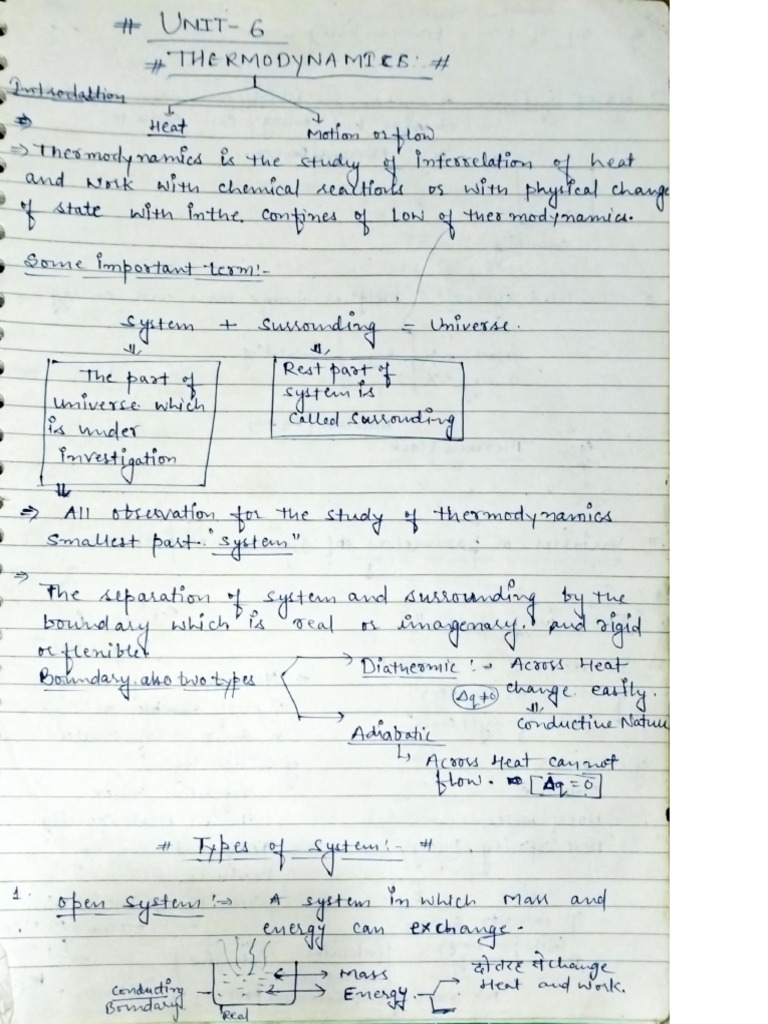 # UNIT-6
# THERMODYNAMICS: #
Introdattion
⇒ Heat Motion or flow
⇒ Thermodynamics is the study of interrelation of heat
and work with chemical reactions or with physical change
of state with inthe confines of Low of thermodynamics.
Some important term:-
System + Surrounding = Universe.
The part of
universe which
is under
investigation
Rest part of
system is
called surrounding
⇒ All observation for the study of thermodynamics
smallest part. "system"
⇒ The separation of system and surrounding by the
boundary which is real or imagenary. and rigid
or flexible
Boundary also two types
Diathermic :→ Across Heat
Δq≠0 change easily.
Conductive Natur
Adiabatic
Across Heat cannot
flow. Δq=0
# Types of system:- #
1. open system :→ A system in which Mass and
energy can exchange.
Conducting
Boundary
Real
Mass
Energy
दो तरह से change
Heat and Work.